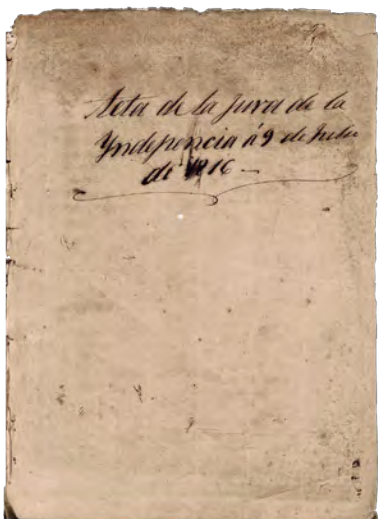 Acta de la Jura de la
Yndepencia á 9 de Julio
de 1816 –